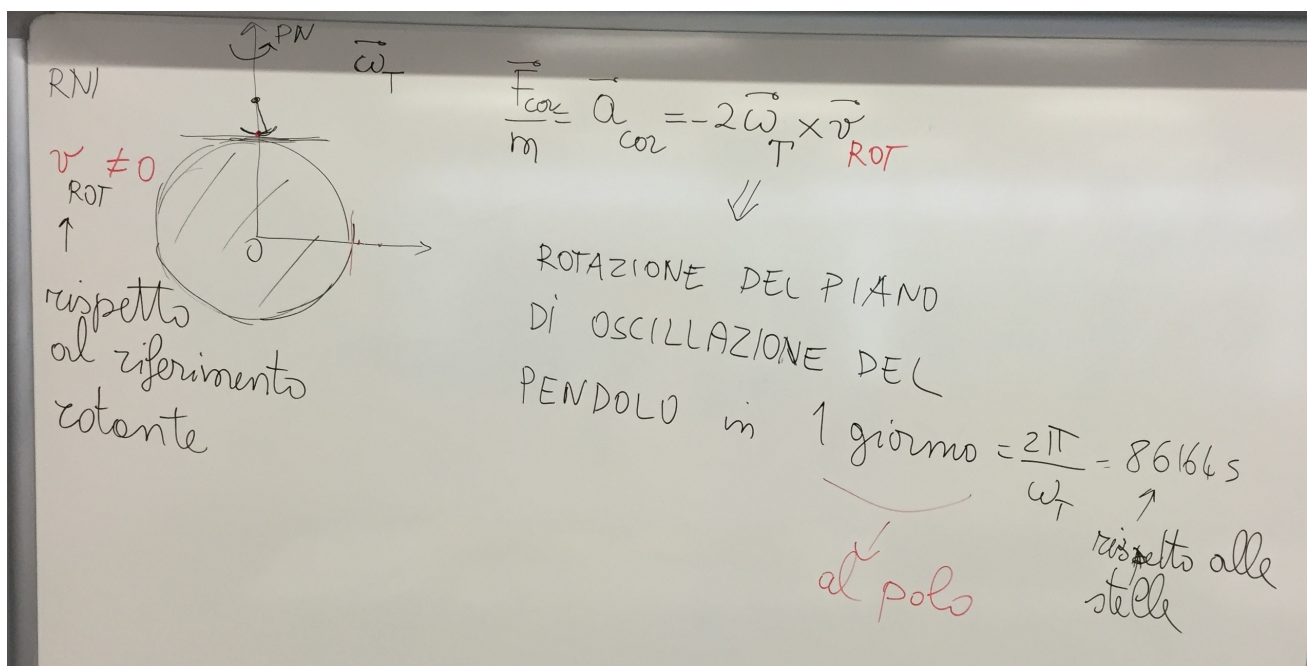 PN
ω⃗_T
RNI
v_ROT ≠ 0
↑
rispetto
al riferimento
rotante
O
F⃗_cor/m = a⃗_cor = -2 ω⃗_T × v⃗_ROT
⇓
ROTAZIONE DEL PIANO
DI OSCILLAZIONE DEL
PENDOLO in 1 giorno = 2π/ω_T = 86164 s
↑
rispetto alle
stelle
al polo